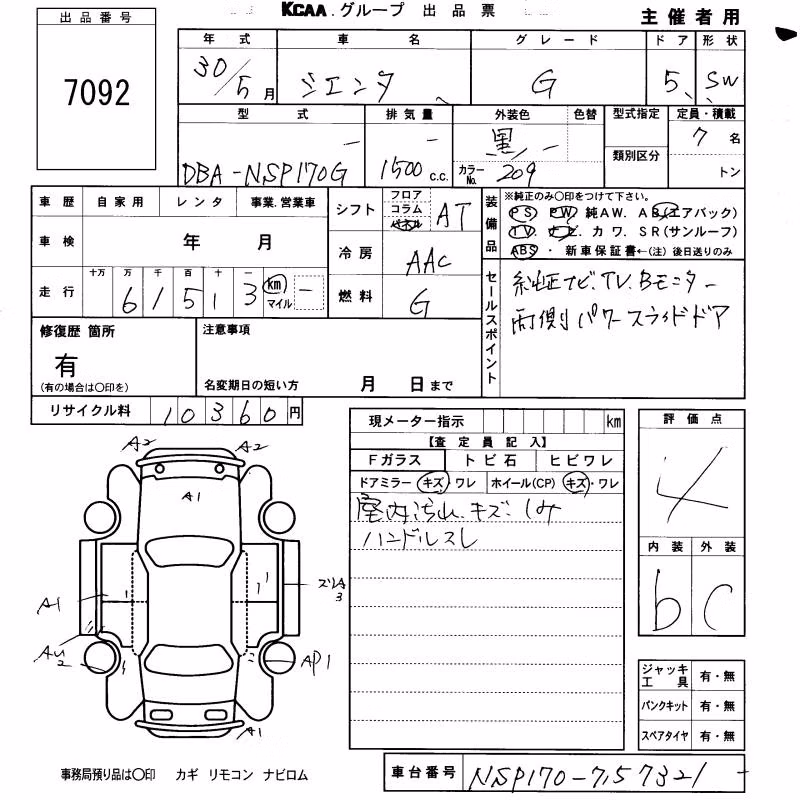 KCAA.グループ 出品票
主催者用
出品番号
7092
年式 車名 グレード ドア 形状
30/5月 シエンタ G 5 SW
型式 排気量 外装色 色替 型式指定 定員・積載
DBA-NSP170G 1500 c.c. 黒 カラーNo. 209 類別区分 7名 トン
車歴 自家用 レンタ 事業.営業車
車検 年 月
走行 十万 万 千 百 十 一
6 1 5 1 3 km マイル
シフト フロア コラム パネル AT
冷房 AAC
燃料 G
装備品
※純正のみ〇印をつけて下さい。
PS PW 純AW. AB(エアバック)
TV. ナビ. カワ. SR(サンルーフ)
ABS ・ 新車保証書←(注) 後日送りのみ
セールスポイント
純正ナビ.TV.Bモニター
両側パワースライドドア
修復歴箇所
有
(有の場合は〇印を)
注意事項
名変期日の短い方 月 日まで
リサイクル料 10360円
現メーター指示 km
【査定員記入】
Fガラス トビ石 ヒビワレ
ドアミラー キズ・ワレ ホイール(CP) キズ・ワレ
室内汚れ.キズ.しみ
ハンドルスレ
評価点
4
内装 外装
b C
A2 A2
A1
A1
AU2
ズレA3
AP1
A1
ジャッキ工具 有・無
パンクキット 有・無
スペアタイヤ 有・無
事務局預り品は〇印 カギ リモコン ナビロム
車台番号 NSP170-7157321